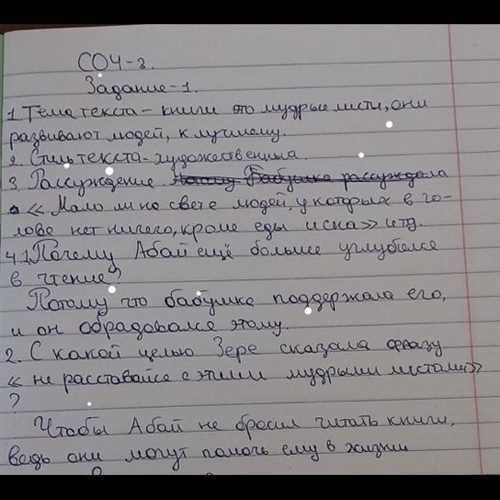 СОЧ-2.
Задание-1.
1 Тема текста - книги это мудрые листы, они
развивают людей, к лучшему.
2. Стиль текста - художественный.
3. Рассуждение Бабушка рассуждала
« Мало ли на свете людей, у которых в го-
лове нет ничего, кроме еды и сна» итд.
4.1 Почему Абай ещё больше углубился
в чтение?
Потому что бабушка поддержала его,
и он обрадовался этому.
2. С какой целью Зере сказала фразу
« не расставайся с этими мудрыми листами»
?
Чтобы Абай не бросил читать книги,
ведь они могут помочь ему в жизни